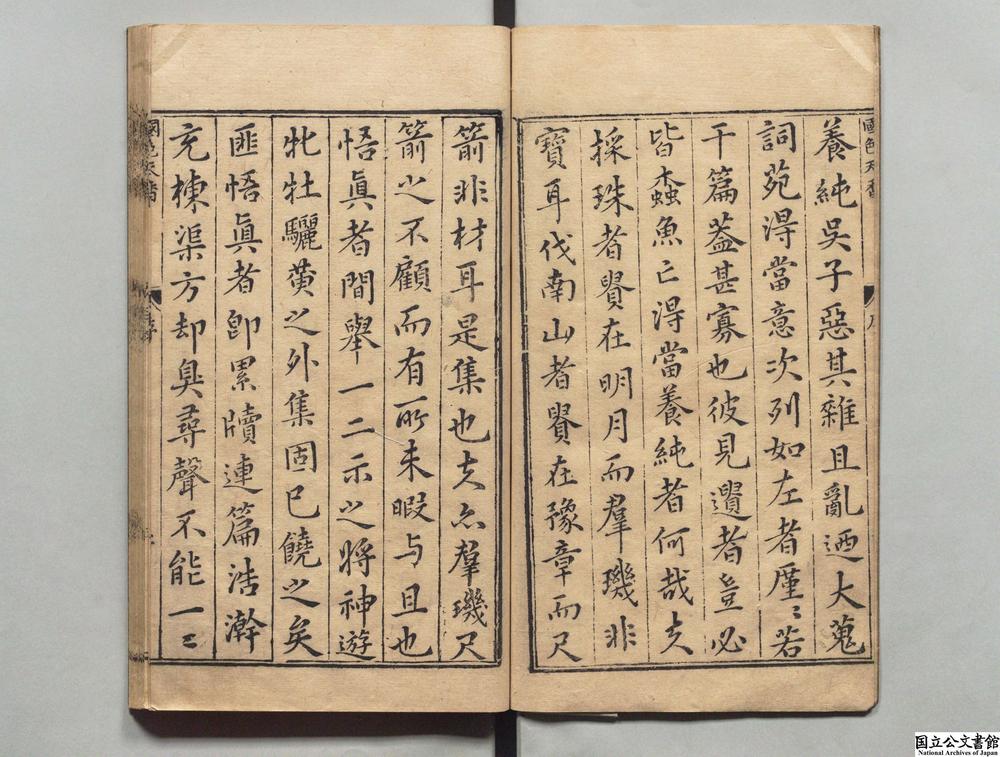 國色天香
養純吳子惡其雜且亂廼大蒐
詞苑淂當意次列如左者厪〻若
干篇葢甚寡也彼見遺者豈必
皆蟲魚亡淂當養純者何哉夫
採珠者貴在明月而羣璣非
寶耳伐南山者貴在豫章而尺
箭非材耳是集也夫亦羣璣尺
箭之不顧而有所未暇与且也
悟眞者間舉一二示之將神遊
牝牡驪黄之外集固已饒之矣
匪悟眞者卽累牘連篇浩瀚
充棟渠方却臭尋聲不能一二
國色天香
序
国立公文書館
National Archives of Japan